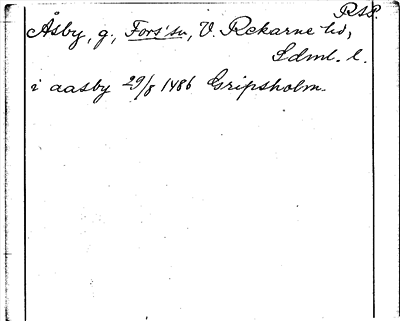 RSP.
Åsby, g., Fors' sn, V. Rekarne hd,
Sdml. l.
i aasby 29/8 1486 Gripsholm